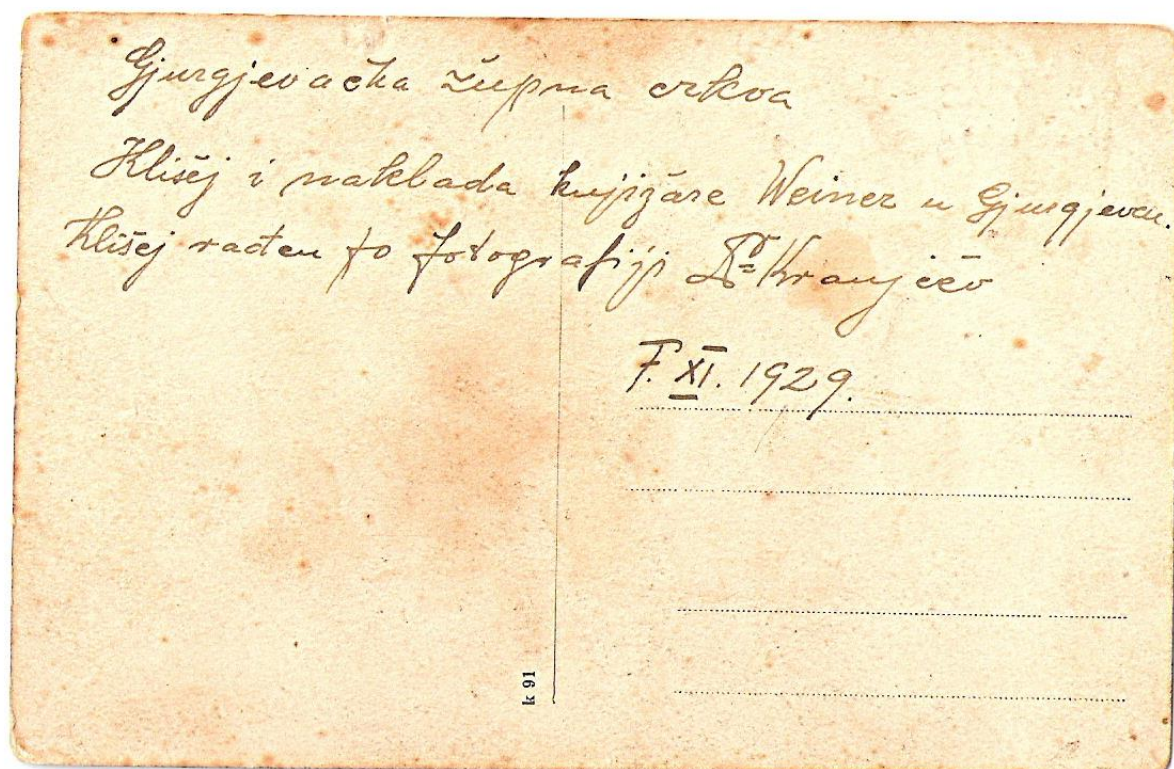 Gjurgjevačka župna crkva
Klišej i naklada knjižare Weiner u Gjurgjevcu.
Klišej rađen po fotografiji Dr Kranjčev
7. XI. 1929.
k 91